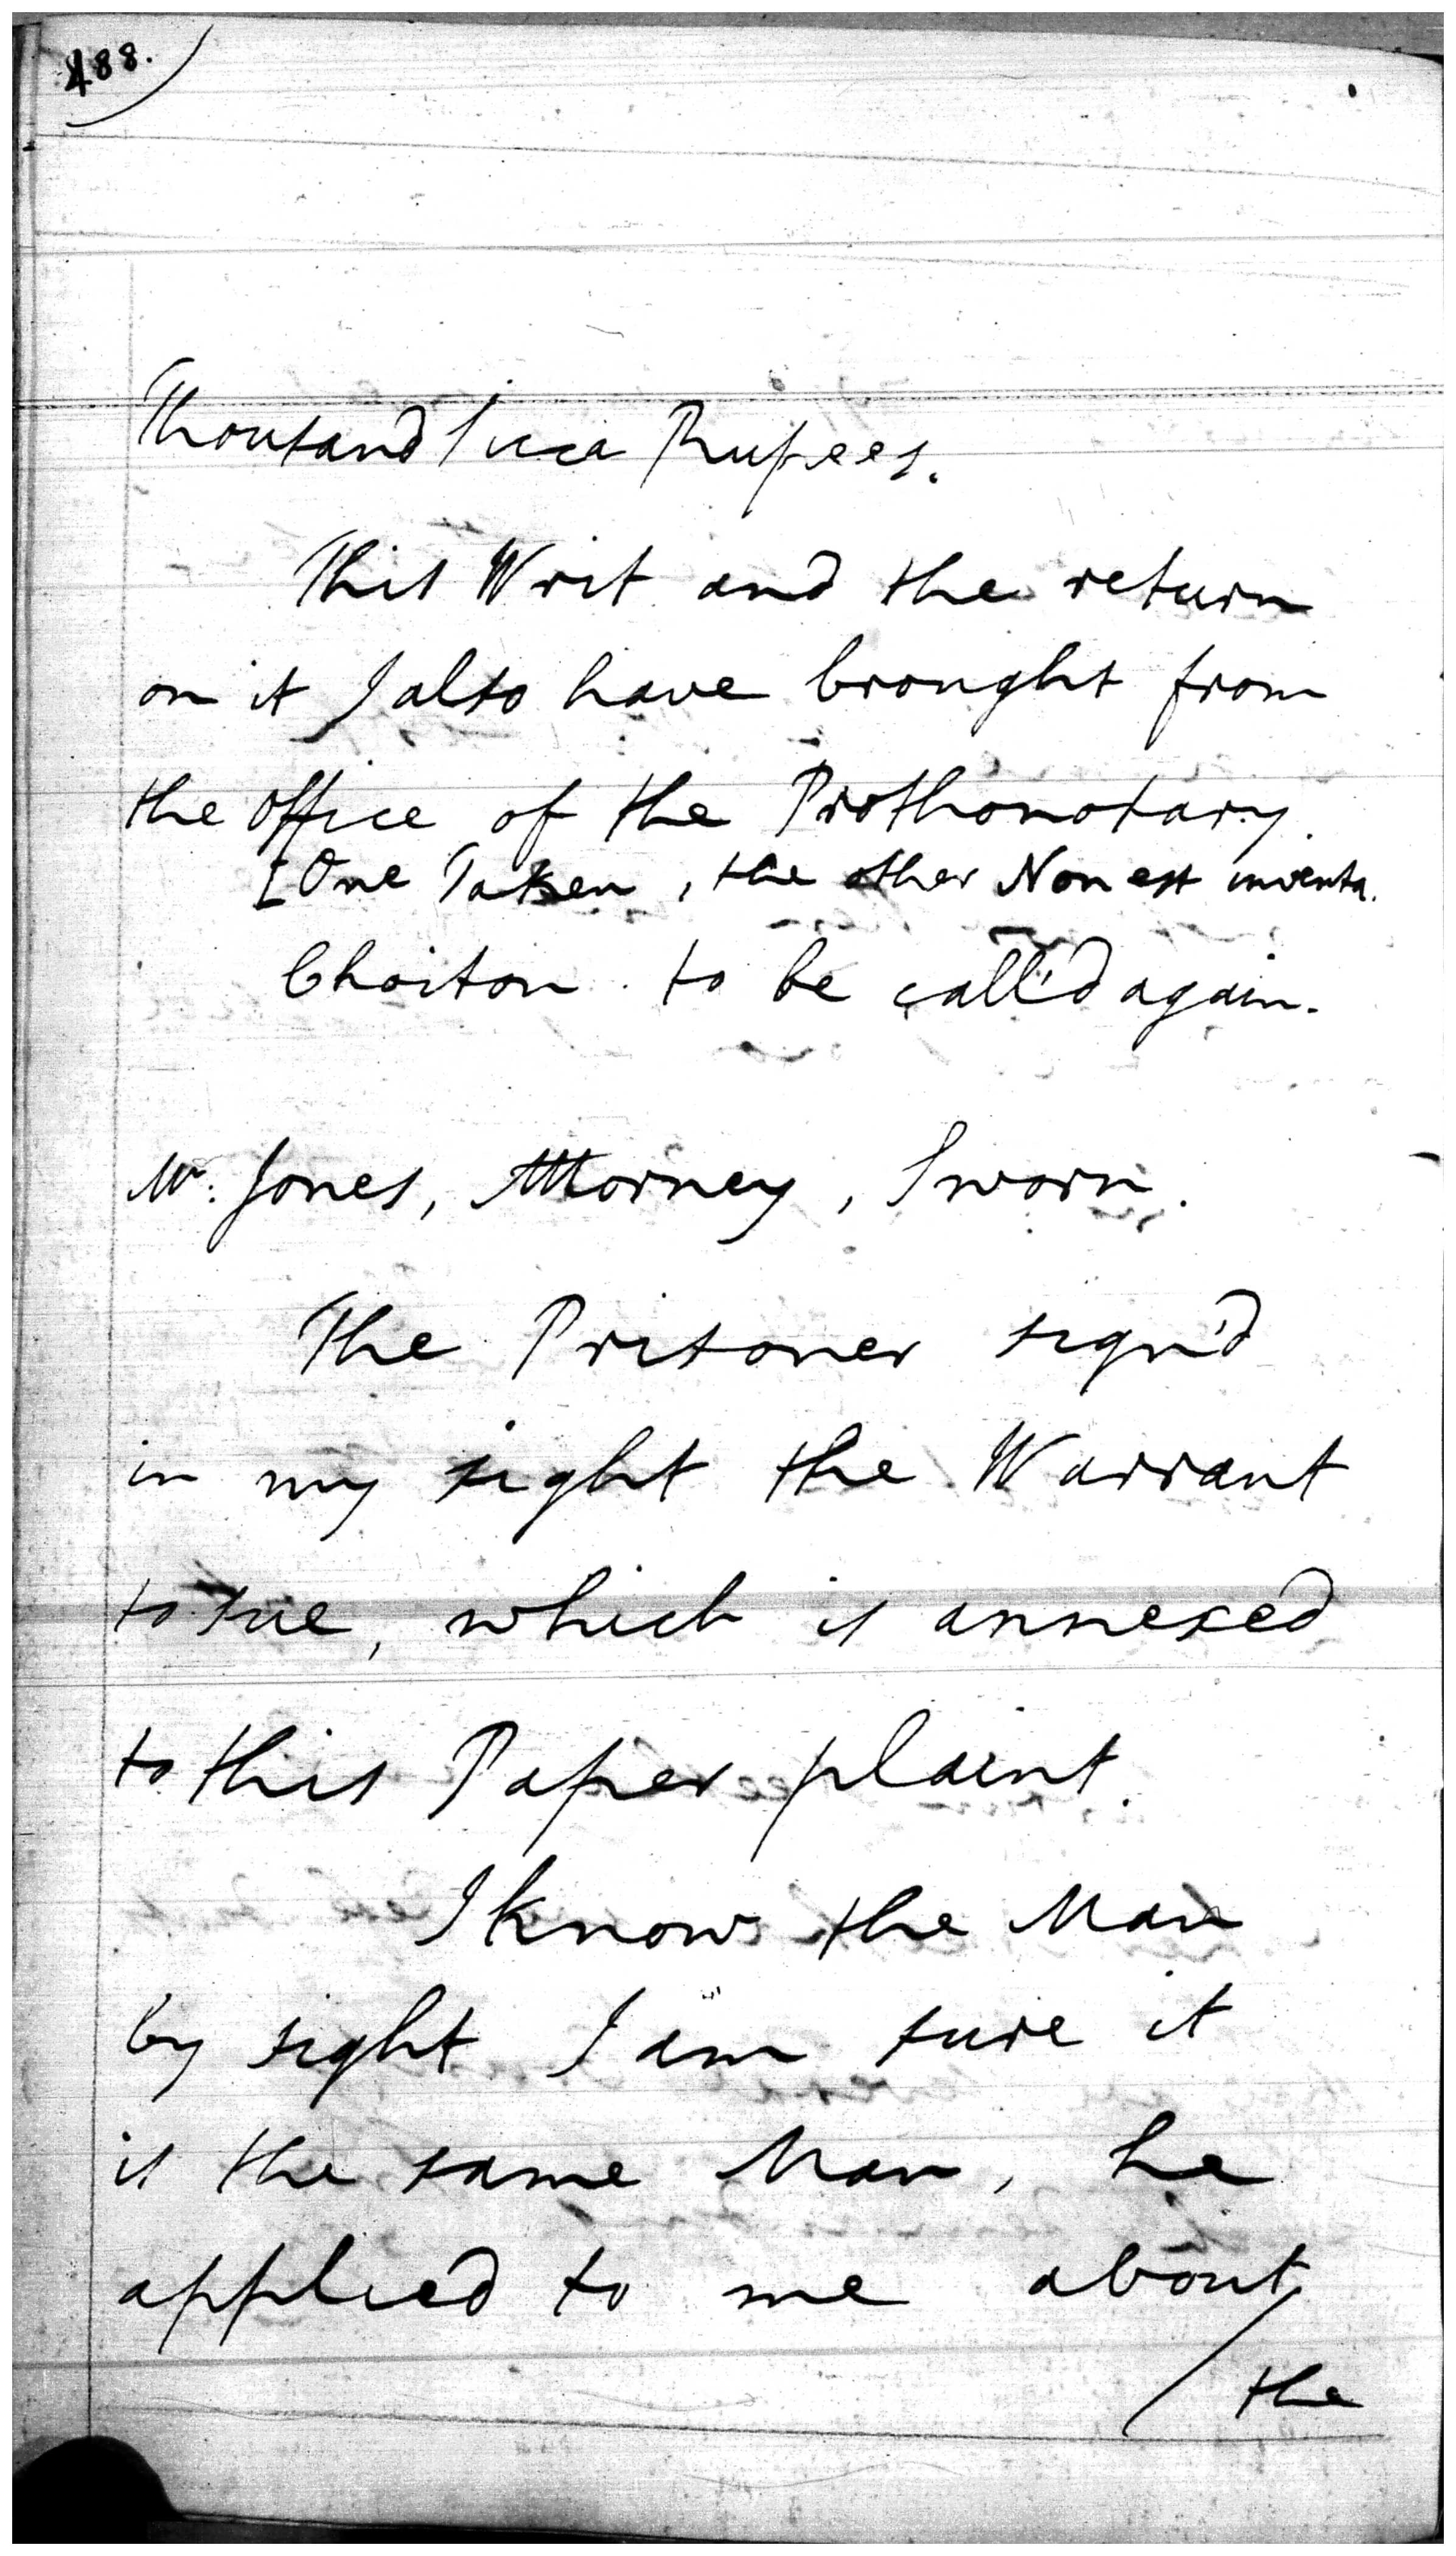 488.
Thousand Sicca Rupees.
This Writ and the return
on it I also have brought from
the office of the Prothonotary.
[One Taken, the other Non est inventa.
Choiton to be call'd again.
Mr. Jones, Attorney, Sworn.
The Prisoner sign'd
in my sight the Warrant
to sue, which is annexed
to this Paper plaint.
I know the Man
by sight I am sure it
is the same Man, he
applied to me about
/the